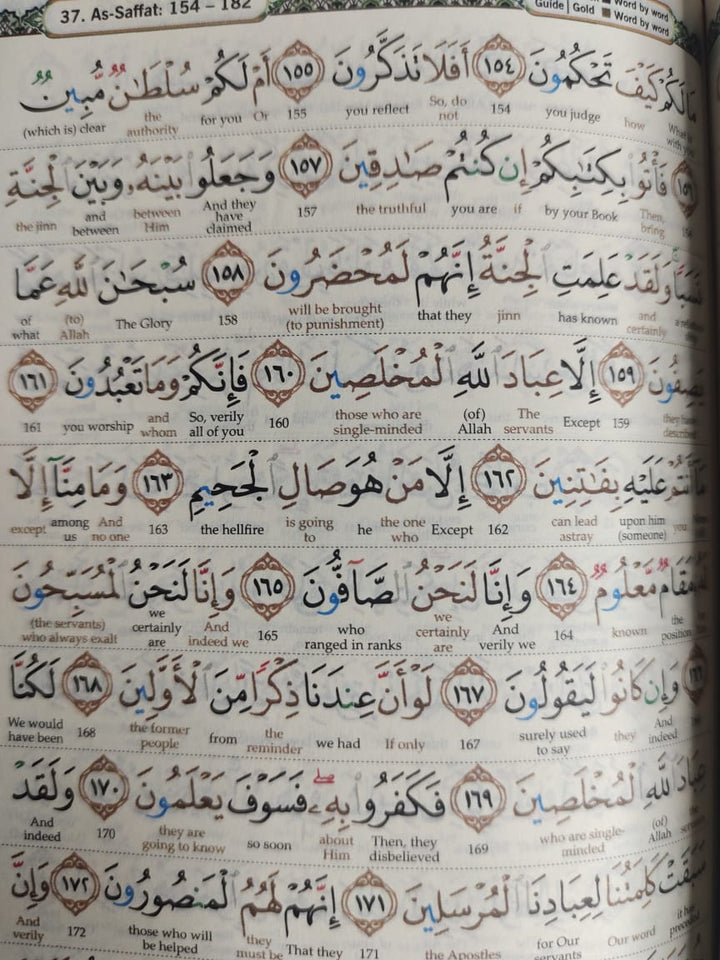 37. As-Saffat: 154 – 182
Word by word
Guide | Gold Word by word
مَا لَكُمْ كَيْفَ تَحْكُمُونَ ١٥٤ أَفَلَا تَذَكَّرُونَ ١٥٥ أَمْ لَكُمْ سُلْطَٰنٌ مُّبِينٌ
how you judge 154 So, do not you reflect 155 Or for you the authority (which is) clear
١٥٦ فَأْتُوا۟ بِكِتَٰبِكُمْ إِن كُنتُمْ صَٰدِقِينَ ١٥٧ وَجَعَلُوا۟ بَيْنَهُۥ وَبَيْنَ ٱلْجِنَّةِ
Then, bring by your Book if you are the truthful 157 And they have claimed between Him and between the jinn
نَسَبًا وَلَقَدْ عَلِمَتِ ٱلْجِنَّةُ إِنَّهُمْ لَمُحْضَرُونَ ١٥٨ سُبْحَٰنَ ٱللَّهِ عَمَّا
and certainly has known jinn that they will be brought (to punishment) 158 The Glory (to) Allah of what
يَصِفُونَ ١٥٩ إِلَّا عِبَادَ ٱللَّهِ ٱلْمُخْلَصِينَ ١٦٠ فَإِنَّكُمْ وَمَا تَعْبُدُونَ ١٦١
they have described 159 Except The servants (of) Allah those who are single-minded 160 So, verily all of you and whom you worship 161
مَآ أَنتُمْ عَلَيْهِ بِفَٰتِنِينَ ١٦٢ إِلَّا مَنْ هُوَ صَالِ ٱلْجَحِيمِ ١٦٣ وَمَا مِنَّآ إِلَّا
you upon him (someone) can lead astray 162 Except the one who he is going to the hellfire 163 And no one among us except
لَهُۥ مَقَامٌ مَّعْلُومٌ ١٦٤ وَإِنَّا لَنَحْنُ ٱلصَّآفُّونَ ١٦٥ وَإِنَّا لَنَحْنُ ٱلْمُسَبِّحُونَ
the position known 164 And verily we we certainly are who ranged in ranks 165 And indeed we we certainly are (the servants) who always exalt
١٦٦ وَإِن كَانُوا۟ لَيَقُولُونَ ١٦٧ لَوْ أَنَّ عِندَنَا ذِكْرًا مِّنَ ٱلْأَوَّلِينَ ١٦٨ لَكُنَّا
And indeed they surely used to say 167 If only we had the reminder from the former people 168 We would have been
عِبَادَ ٱللَّهِ ٱلْمُخْلَصِينَ ١٦٩ فَكَفَرُوا۟ بِهِۦ ۖ فَسَوْفَ يَعْلَمُونَ ١٧٠ وَلَقَدْ
(of) Allah who are single-minded 169 Then, they disbelieved about Him so soon they are going to know 170 And indeed
سَبَقَتْ كَلِمَتُنَا لِعِبَادِنَا ٱلْمُرْسَلِينَ ١٧١ إِنَّهُمْ لَهُمُ ٱلْمَنصُورُونَ ١٧٢ وَإِنَّ
it has preceded Our word for Our servants the Apostles 171 That they they must be those who will be helped 172 And verily